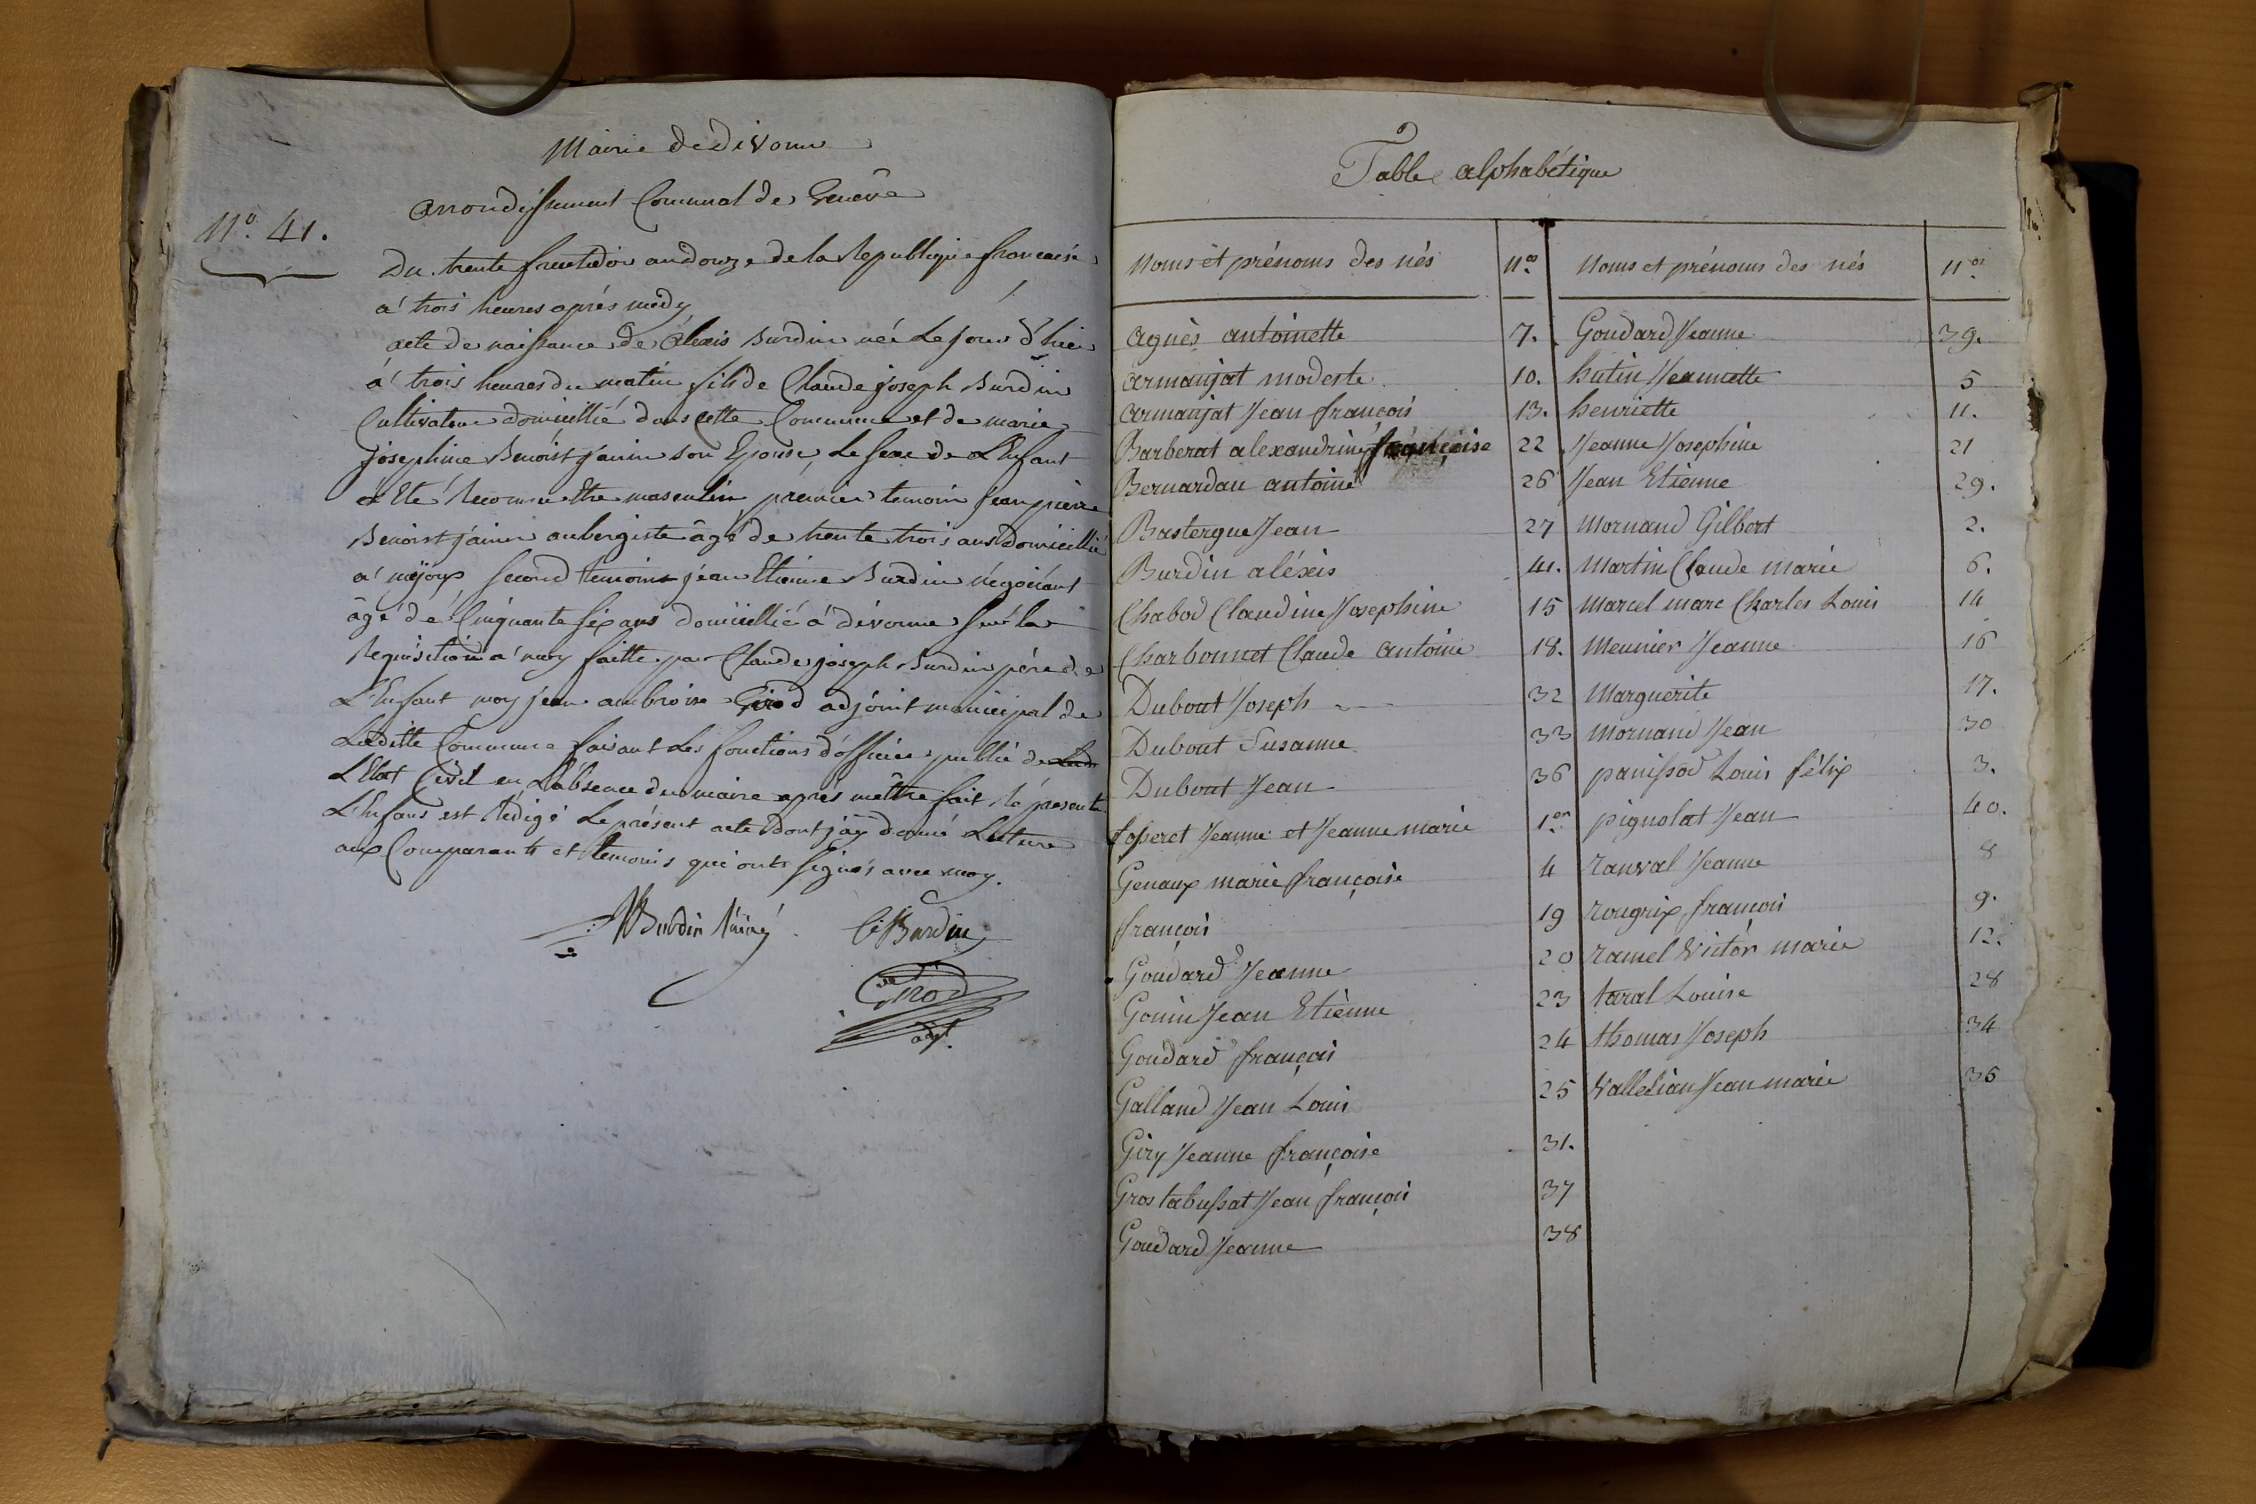 Mairie de divonne
arrondissement Communal de Genève
N.º 41.
Du trente fructidor an douze de la Republique francaise
a' trois heures après midy
acte de naissance de alexis Burdin née Le jour d'hier
a' trois heures du matin fils de Claude joseph Burdin
Cultivateur domicillié dans cette Commune et de marie
josephine Benoist j'anin son Epouse, Le sexe de L'Enfant
a Eté Reconnu être masculin premier temoin jean pierre
Benoist j'anin aubergiste âgé de trente trois ans domicillié
a' mijoux second temoin jean Etienne Burdin négociant
âgé de Cinquante six ans domicillié à divonne sur la
Requisition a' moy faitte par Claude joseph Burdin père de
L'Enfant moy jean ambroise Girod adjoint municipal de
Laditte Commune faisant Les fonctions d'officier public de
L'Etat Civil en L'absence du maire après m'être fait présenté
L'Enfant est Rédigé Le présent acte dont j'ày donné Lecture
aux Comparants et temoins qui ont signés avec moy.
Burdin L'ainé Cj Burdin
Girod
adjt.
Table alphabétique
Noms et prénoms des nés N.os Noms et prénoms des nés N.os
agnès antoinette 7. Goudard Jeanne 39.
armanjat modeste 10. hutin Jeannette 5
armanjat Jean françois 13. henriette 11.
Barberat alexandrine françoise 22 Jeanne Josephine 21
Bernardau antoine 26 Jean Etienne 29.
Bastergue Jean 27 Mornand Gilbert 2.
Burdin aléxis 41. Martin Claude marie 6.
Chabod Claudine Josephine 15 Marcel marc Charles Louis 14
Charbonnet Claude antoine 18. Meunier Jeanne 16
Dubout Joseph 32 Marguerite 17.
Dubout Susanne 33 Mornand Jean 30
Dubout Jean 36 panissod Louis félix 3.
fosseret Jeanne et Jeanne marie 1er pignolat Jean 40.
Genaux marie françoise 4 ranval Jeanne 8
françois 19 rougrix françois 9.
Goudard Jeanne 20 ramel Victor marie 12.
Gonin Jean Etienne 23 taral Louise 28
Goudard françois 24 thomas Joseph 34
Galland Jean Louis 25 Vallélian Jean marie 35
Giry Jeanne françoise 31.
Gros tabussat Jean françois 37
Goudard Jeanne 38